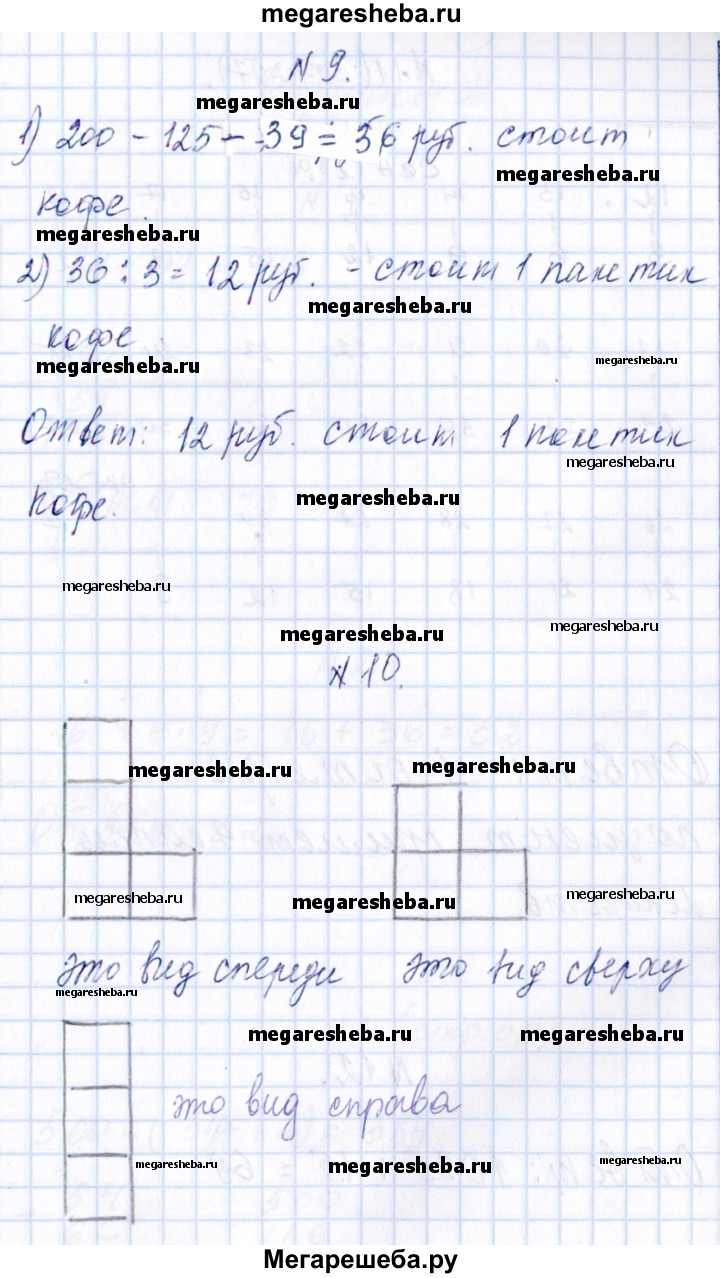 megaresheba.ru
N 9.
megaresheba.ru
1) 200 - 125 - 39 = 36 руб. стоит
megaresheba.ru
кофе.
megaresheba.ru
2) 36 : 3 = 12 руб. - стоит 1 пакетик
megaresheba.ru
кофе
megaresheba.ru megaresheba.ru
Ответ: 12 руб. стоит 1 пакетик
megaresheba.ru
кофе.
megaresheba.ru
megaresheba.ru
megaresheba.ru megaresheba.ru
N 10.
megaresheba.ru megaresheba.ru
megaresheba.ru megaresheba.ru megaresheba.ru
это вид спереди это вид сверху
megaresheba.ru
megaresheba.ru megaresheba.ru
это вид справа
megaresheba.ru megaresheba.ru megaresheba.ru
Мегарешеба.ру